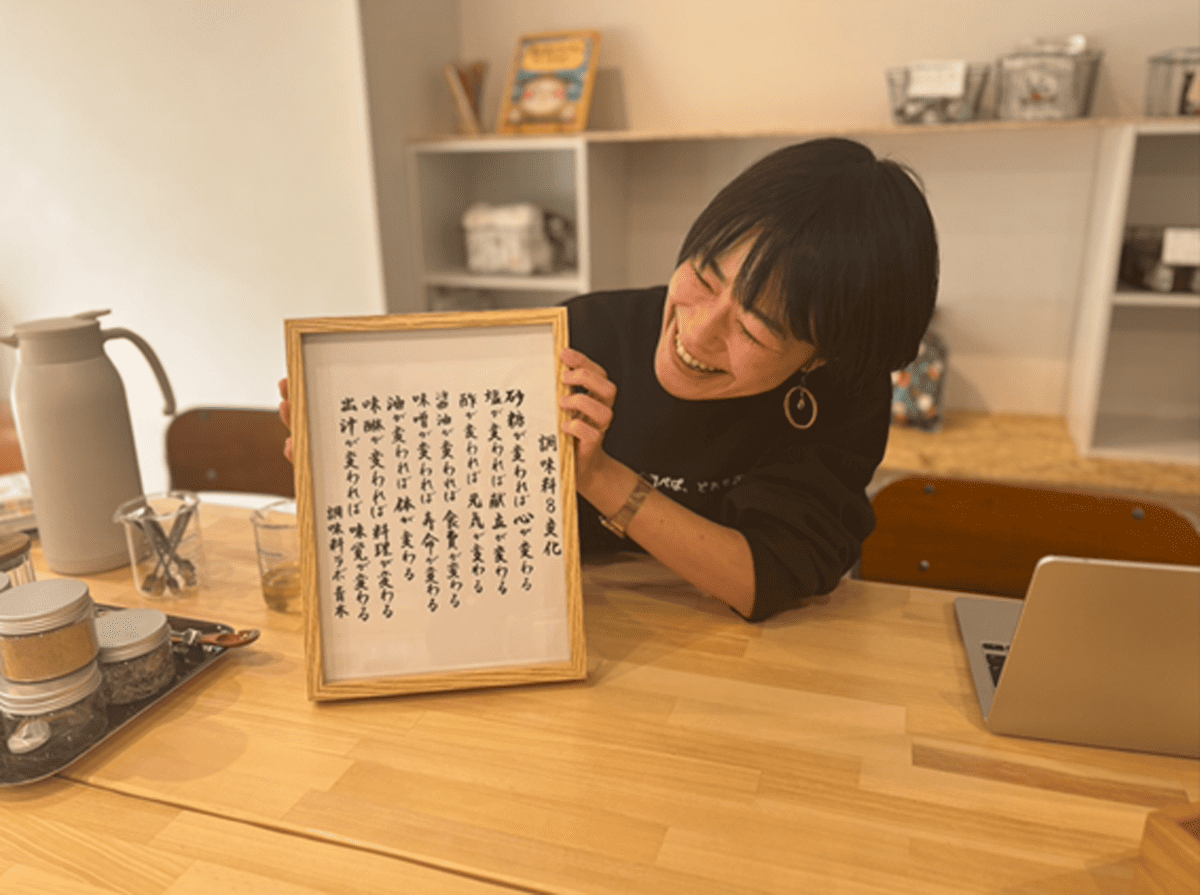 調味料８変化
砂糖が変われば 心が変わる
塩が変われば 献立が変わる
酢が変われば 元気が変わる
醤油が変われば 食費が変わる
味噌が変われば 寿命が変わる
油が変われば 体が変わる
味醂が変われば 料理が変わる
出汁が変われば 味覚が変わる
調味料ラボ 青木